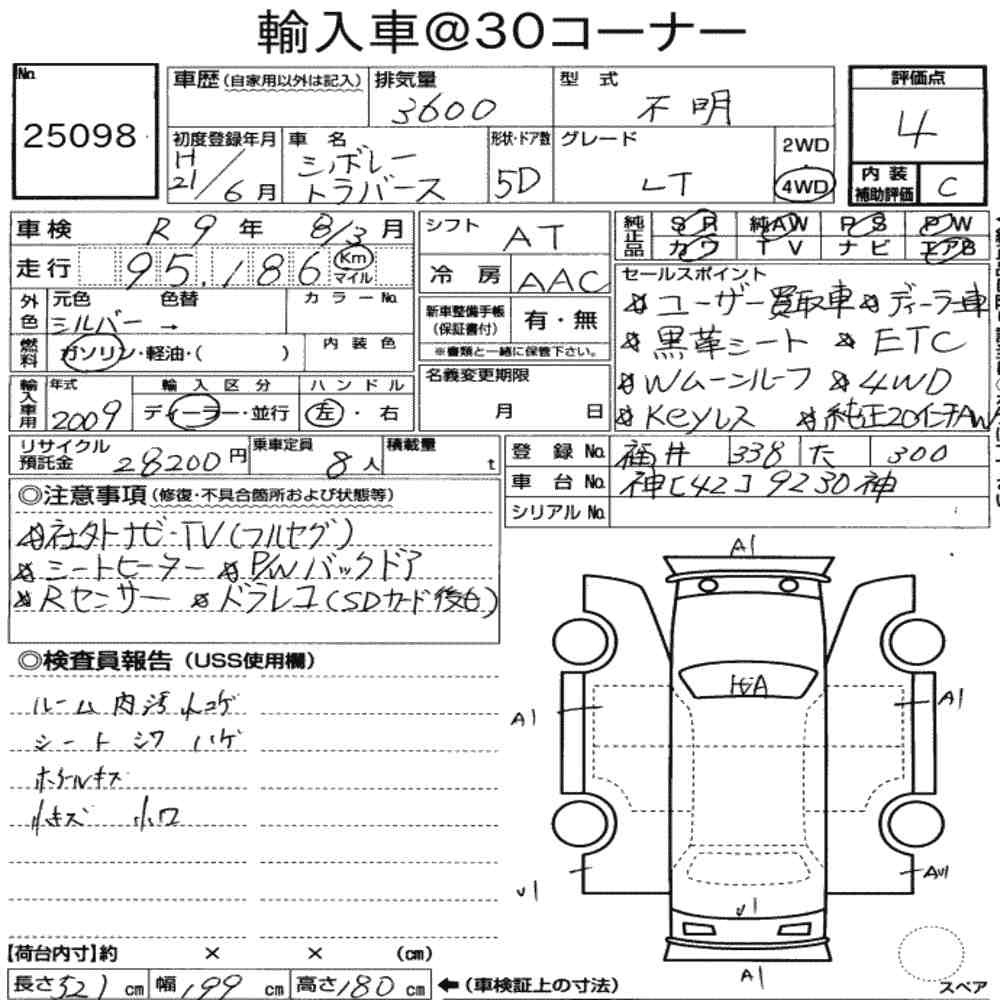 輸入車@30コーナー
No. 25098
車歴(自家用以外は記入) 排気量 3600 型式 不明 評価点 4
初度登録年月 H21/6月 車名 シボレー トラバース 形状・ドア数 5D グレード LT 2WD 4WD 内装補助評価 C
車検 R9年 8/3月 シフト AT 純正品 SR 純AW PS PW
カワ TV ナビ エアB
走行 95,186 Km マイル 冷房 AAC
外色 元色 シルバー → 色替 カラーNo. 新車整備手帳(保証書付) 有・無
※書類と一緒に保管下さい。
燃料 ガソリン・軽油・( ) 内装色
輸入車用 年式 2009 輸入区分 ディーラー・並行 ハンドル 左・右 名義変更期限 月 日
セールスポイント
☆ユーザー買取車 ☆ディーラー車
☆黒革シート ☆ETC
☆Wムーンルーフ ☆4WD
☆Keyレス ☆純正20インチAW
リサイクル預託金 28200円 乗車定員 8人 積載量 t
登録No. 福井 338 た 300
車台No. 神[42]9230神
シリアルNo.
◎注意事項(修復・不具合箇所および状態等)
☆社外ナビ・TV(フルセグ)
☆シートヒーター ☆P/Wバックドア
☆Rセンサー ☆ドラレコ(SDカード後日)
◎検査員報告(USS使用欄)
ルーム内汚 小コゲ
シート シワ ハゲ
ホイールキズ
小キズ
A1
A1
A1
V1
AV1
V1
A1
【荷台内寸】約 × × (cm)
長さ521cm 幅199cm 高さ180cm ←(車検証上の寸法)
スペア